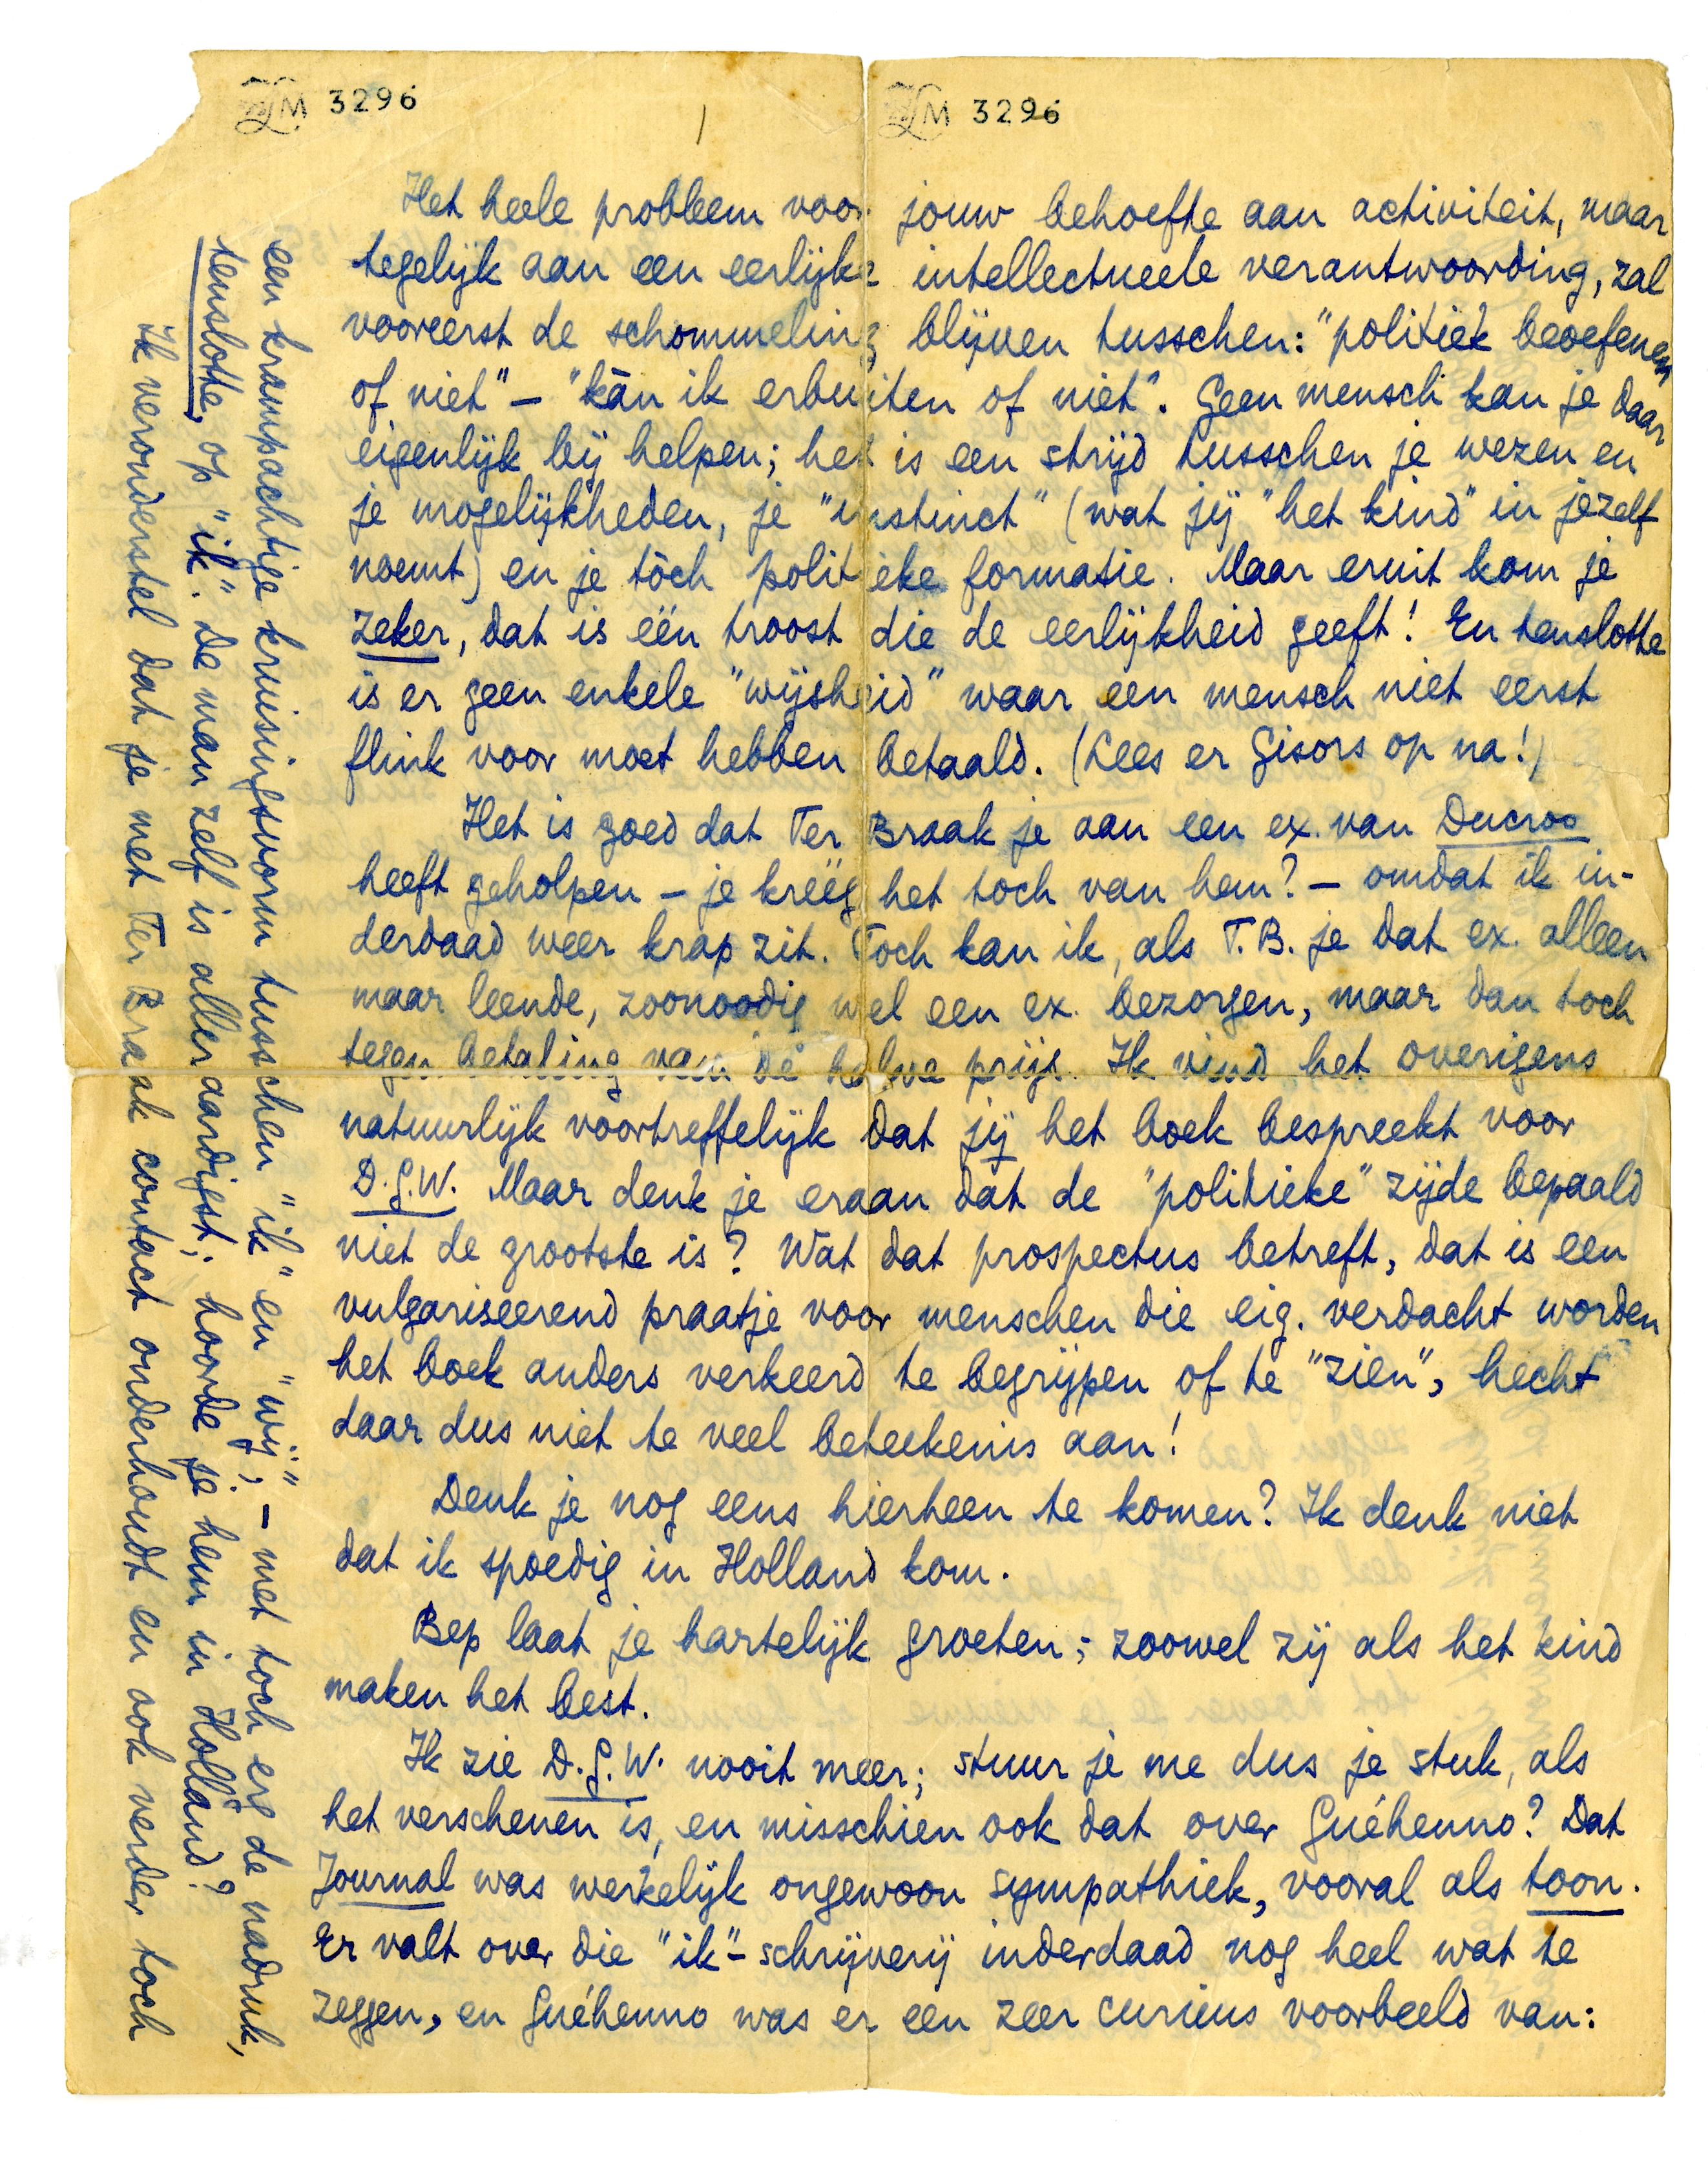 LM 3296
LM 3296
1
Het heele probleem voor jouw behoefte aan activiteit, maar
tegelijk aan een eerlijke intellectueele verantwoording, zal
vooreerst de schommeling blijven tusschen: "politiek beoefenen
of niet" – "kàn ik erbuiten of niet". Geen mensch kan je daar
eigenlijk bij helpen; het is een strijd tusschen je wezen en
je mogelijkheden, je "instinct" (wat jij "het kind" in jezelf
noemt) en je tòch politieke formatie. Maar eruit kom je
zeker, dat is één troost die de eerlijkheid geeft! En tenslotte
is er geen enkele "wijsheid" waar een mensch niet eerst
flink voor moet hebben betaald. (Lees er Gisors op na!)
Het is goed dat Ter Braak je aan een ex. van Ducroo
heeft geholpen – je kreeg het toch van hem? – omdat ik in-
derdaad weer krap zit. Toch kan ik, als T.B. je dat ex. alleen
maar leende, zoonoodig wel een ex. bezorgen, maar dan toch
tegen betaling van de halve prijs. Ik vind het overigens
natuurlijk voortreffelijk dat jij het boek bespreekt voor
D.G.W. Maar denk je eraan dat de "politieke" zijde bepaald
niet de grootste is? Wat dat prospectus betreft, dat is een
vulgariseerend praatje voor menschen die eig. verdacht worden
het boek anders verkeerd te begrijpen of te "zien", hecht
daar dus niet te veel beteekenis aan!
Denk je nog eens hierheen te komen? Ik denk niet
dat ik spoedig in Holland kom.
Bep laat je hartelijk groeten; zoowel zij als het kind
maken het best.
Ik zie D.G.W. nooit meer; stuur je me dus je stuk, als
het verschenen is, en misschien ook dat over Guéhenno? Dat
Journal was werkelijk ongewoon sympathiek, vooral als toon.
Er valt over die "ik"-schrijverij inderdaad nog heel wat te
zeggen, en Guéhenno was er een zeer curieus voorbeeld van:
een krampachtige kruisingsvorm tusschen "ik" en "wij", – met toch erg de nadruk,
tenslotte, op "ik". De man zelf is alleraardigst; hoorde je hem in Holland?
Ik veronderstel dat je met Ter Braak contact onderhoudt en ook verder toch